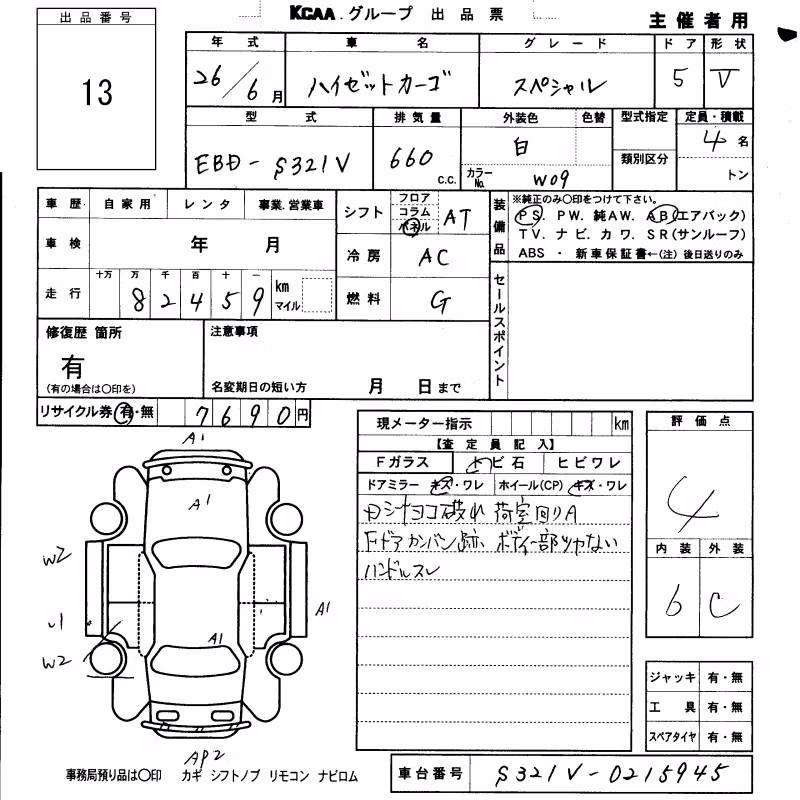 KCAA.グループ 出品票
主催者用
出品番号
13
年式 車名 グレード ドア 形状
26/6月 ハイゼットカーゴ スペシャル 5 V
型式 排気量 外装色 色替 型式指定 定員・積載
EBD-S321V 660 c.c. 白 4名
類別区分
カラーNo. W09 トン
車歴 自家用 レンタ 事業.営業車
シフト フロア コラム パネル AT
装備品 ※純正のみ○印をつけて下さい。
PS. PW. 純AW. AB(エアバック)
TV. ナビ. カワ. SR(サンルーフ)
ABS ・ 新車保証書←(注) 後日送りのみ
車検 年 月
冷房 AC
走行 十万 万 千 百 十 一
82459 km マイル
燃料 G
セールスポイント
修復歴 箇所
有
(有の場合は○印を)
注意事項
名変期日の短い方 月 日まで
リサイクル券 有・無 7690円
現メーター指示 km
評価点
【査定員記入】
Fガラス トビ石 ヒビワレ
ドアミラー キズ・ワレ ホイール(CP) キズ・ワレ
4
ヨコ破れ 荷室回りA
Fドアカンバン跡、ボディ一部ツヤない
ハンドルスレ
内装 外装
6 C
A1
A1
W2
U1
A1
A1
W2
AP2
ジャッキ 有・無
工具 有・無
スペアタイヤ 有・無
事務局預り品は○印 カギ シフトノブ リモコン ナビロム
車台番号 S321V-0215945